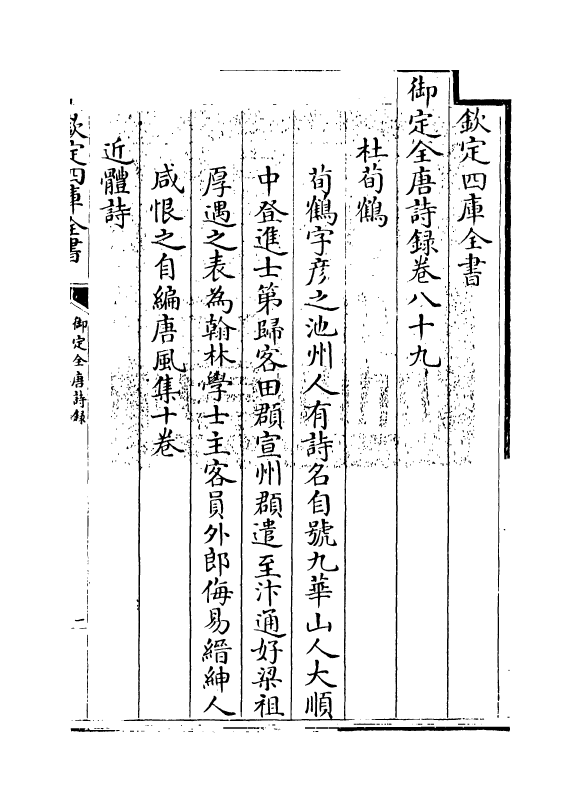 欽定四庫全書
御定全唐詩録卷八十九
杜荀鶴
荀鶴字彦之池州人有詩名自號九華山人大順
中登進士第歸客田頵宣州頵遣至汴通好梁祖
厚遇之表為翰林學士主客員外郎侮易縉紳人
咸恨之自編唐風集十卷
近體詩
欽定四庫全書
御定全唐詩録
一